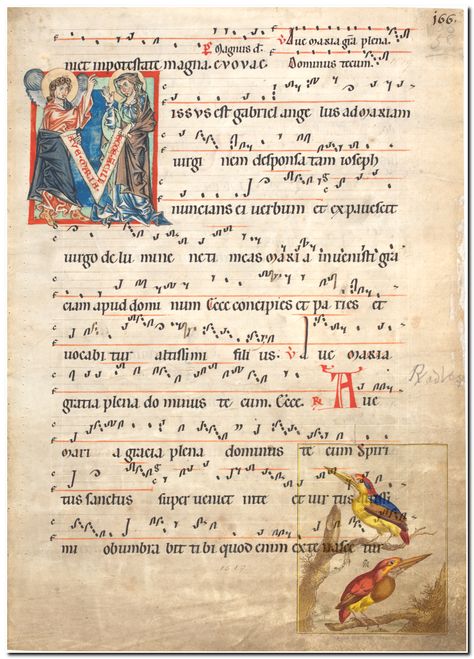 166.
Magnus d̄. Aue maria gr̄a plena.
niet in potestate magna. evovae Dominus tecum.
M issus est gabriel ange lus ad mariam
uirgi nem desponsa tam ioseph
nuncians ei verbum et expauescit
uirgo de lu mine ne ti meas maria inuenisti gra
ciam apud domi num Ecce concipies et pa ries et
uocabi tur altissimi fili us. V Aue maria
gratia plena do minus te cum. Ecce. R Aue
mari a gracia plena dominus te cum Spiri
tus sanctus super ueniet in te et uir tus
mi obumbra bit ti bi quod enim ex te nasce tur